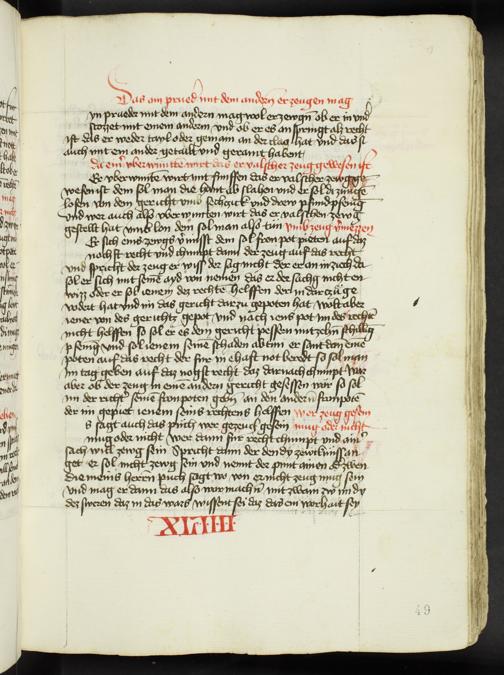 Das ain prueder mit dem andern erzeugen mag
yn prueder mit dem andern mag wol erzeugn ob er in und
stozset mit einem andern und ob er es anspringt ab recht
ist das er weder tayl oder gemain an der clag hat und das si
auch mit ein ander getailt und geraint habent
da einer uberwinttn wirt das er valscher zeug gewesen ist
Er uberwintt wirt mit sinssen das er valscher zewg ge
wesen ist dem sol man die hant ab slahen und er sol di zungn
losen von dem gericht umb sechzick und drew pfund pfennig
und wer auch also uberwunten wirt das er valschen zewg
gestellt hat umb lon dem sol man also tun umb zeug vermezzen
Er sich eins zewgs vermisst dem sol fronpot pieten auf daz
nachst recht und chumpt dann der zeug auf das recht
und spricht der zeug er wiss der sag nicht der er an im zich da
sol er sich mit seinem ayd von nemen das er der sach nicht en
wizz oder er sol ienem dez rechten helffen der in dar zu ge
vodert hat und im das gericht darzu gepoten hat wolt aber
iener von des gerichtz gepot und nach iens pot im des rechten
nicht helffen so sol er es dem gericht pessen mit zehn schillig
pfenig und sol ienem seinen schaden abtun er sant dann eine
poten auf das recht der sine ehaft not beredt so sol man
im tag geben auf daz nachst recht daz darnach chumpt wär
aber ob der zeug in einem andern gericht gesessen wär so sol
im der richter seinen fronpoten gebn an den andern fronpoten
der im gepiet ienem seins rechtens helffen wer zeug gesein
s sagt auch das puch wer gezeug gesein mug oder nicht
mug oder nicht wer dann fur recht chumpt und ainer
sach wil zewg sein Spricht dann der den dy zewgknuss an
get er sol nicht zewg sein und nennt der punt ainen oder zwen
die meins herren puch sagt wo von er nicht zeug mug sein
und mag er dann das also war machn mit zwain zw im dy
dez sweren daz in das wars wissent sei daz das ein worhait sey
XLIIII
49